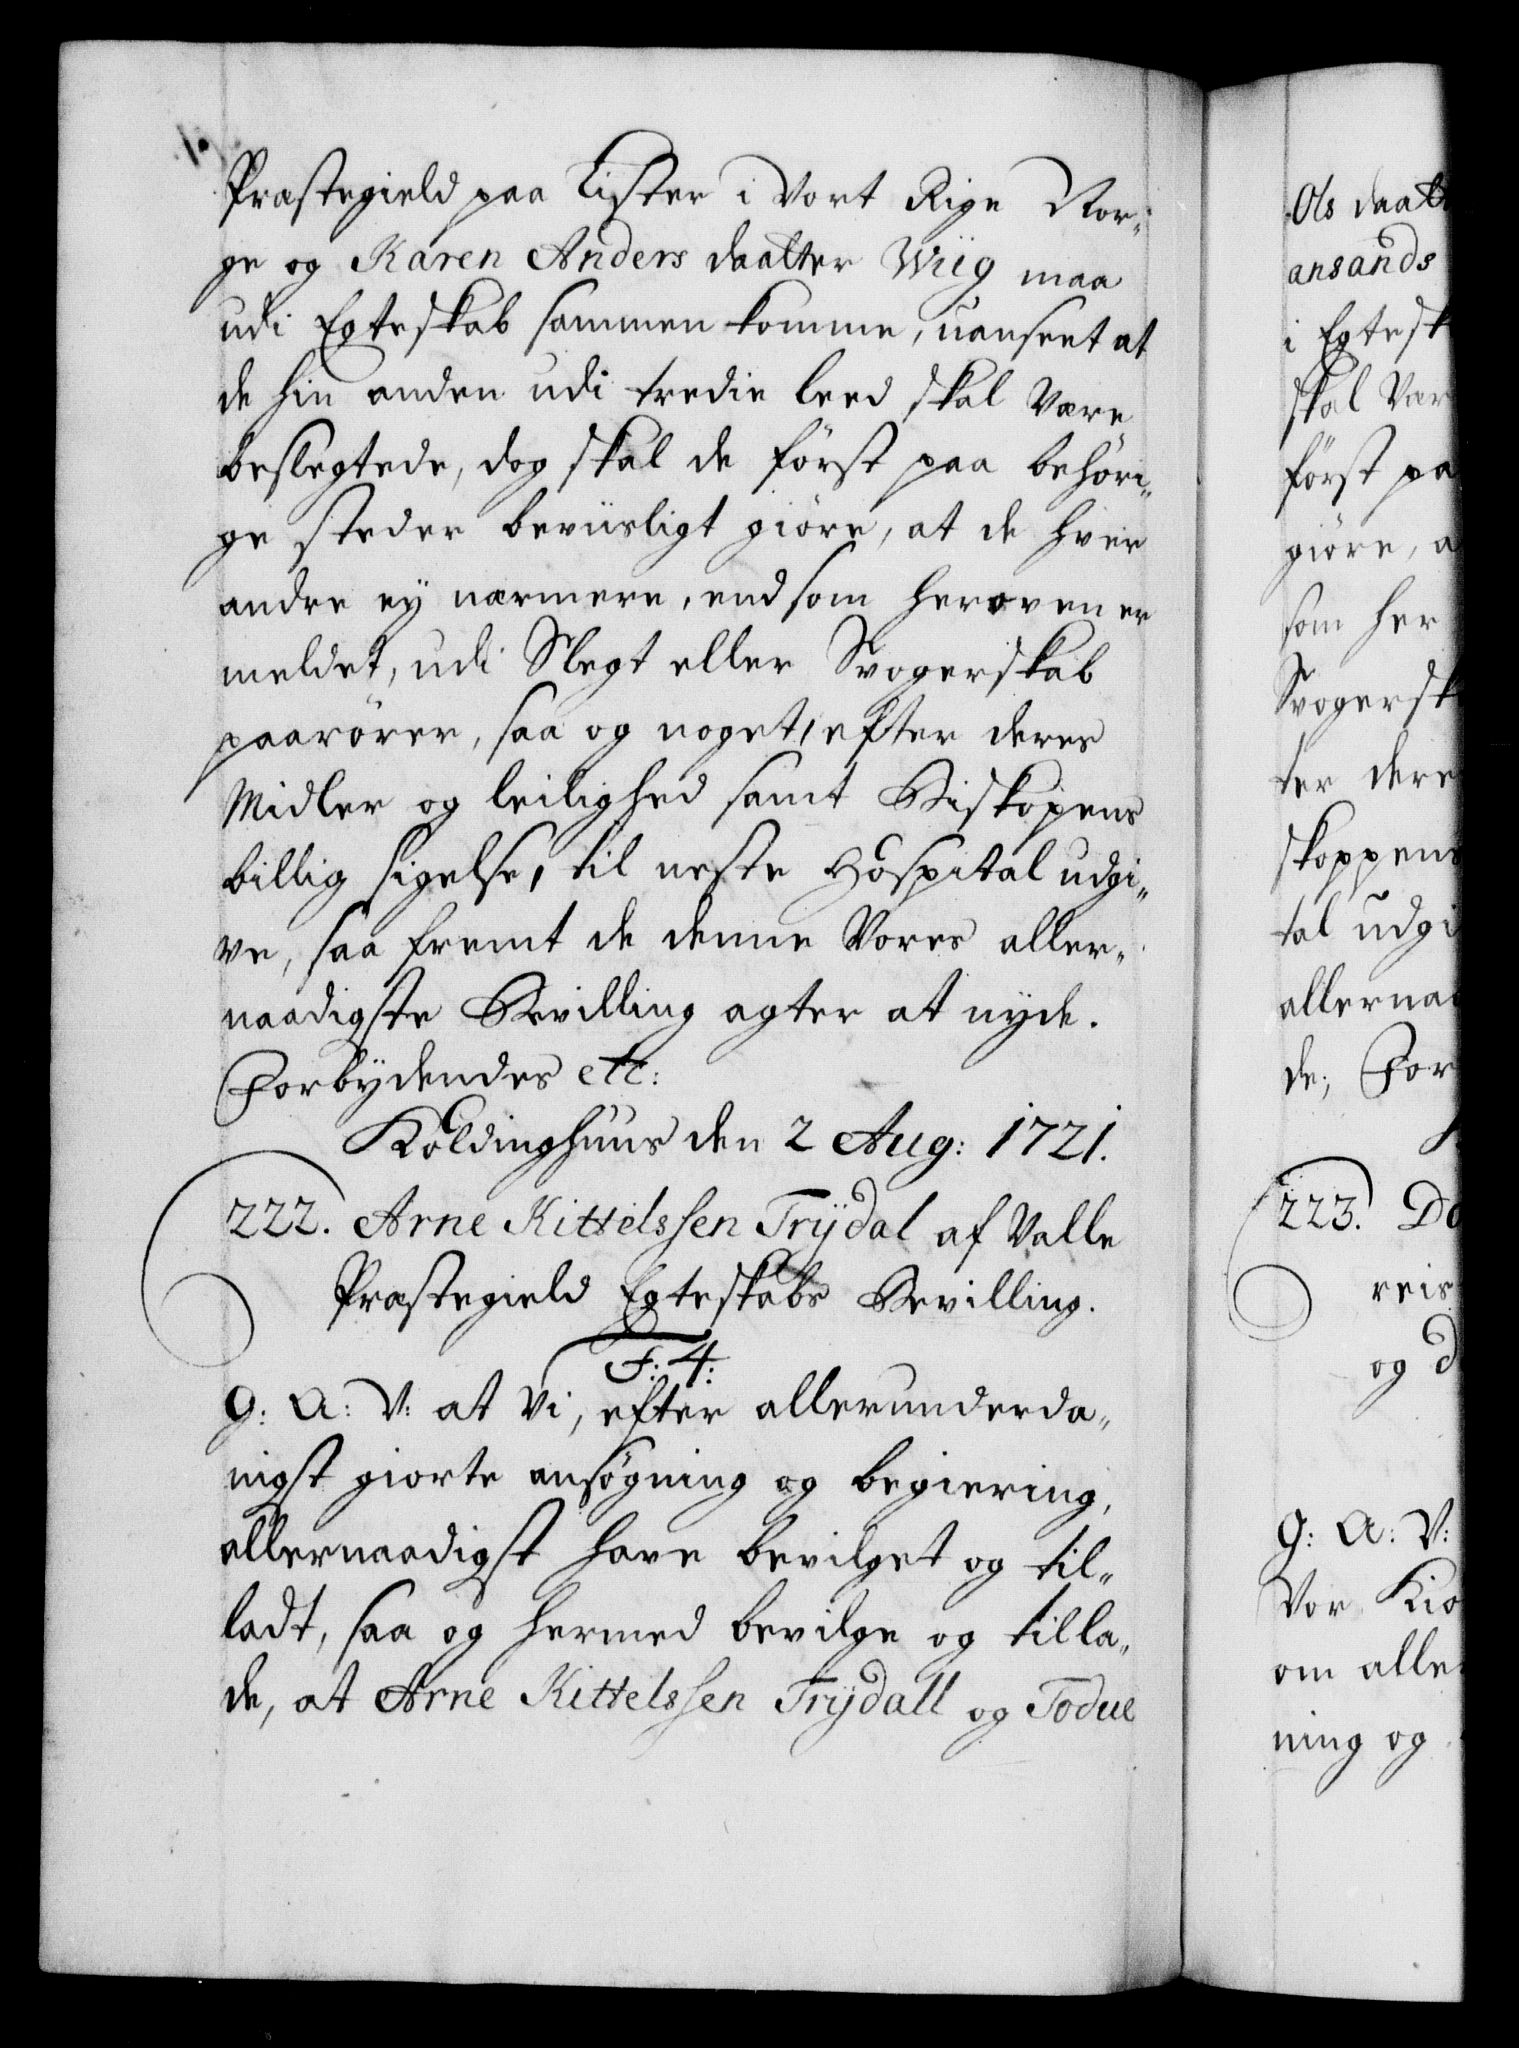 Præstegield paa Lister i Vort Rige Nor„
ge og Karen Anders daatter Wiig maa
udi Egteskab sammen komme, uanseet at
de hin anden udi tredie leed skal være
beslegtede, dog skal de först paa behöri„
ge steder beviisligt giöre, at de hver
andre ey nærmere, end som heroven er
meldet, udi Slegt eller Svogerskab
paarörer, saa og noget, efter deres
Midler og leilighed samt Biskopens
billig sigelse, til neste Hospital udgi„
ve, saa fremt de denne Vores aller„
naadigste Bevilling agter at nyde.
Forbydendes etc:
Koldinghuus den 2 Aug: 1721.
222. Arne Kittelssen Trÿdal af Valle
Præstegield Egteskabs Bevilling.
F: 4:
G: A: V: at Vi, efter allerunderda„
nigst giorte ansögning og begiering,
allernaadigst have bevilget og til„
ladt, saa og hermed bevilge og tilla„
de, at Arne Kittelssen Trÿdall og Todue
Ols daatt
ansands
i Egtesk
skal Vær
först pa
giöre, a
som her
Svogersk
ter dere
skoppens
tal udgi
allernaa
de; For
223. Do
reis
og d
G: A: V:
Vor Kio
om alle
ning og